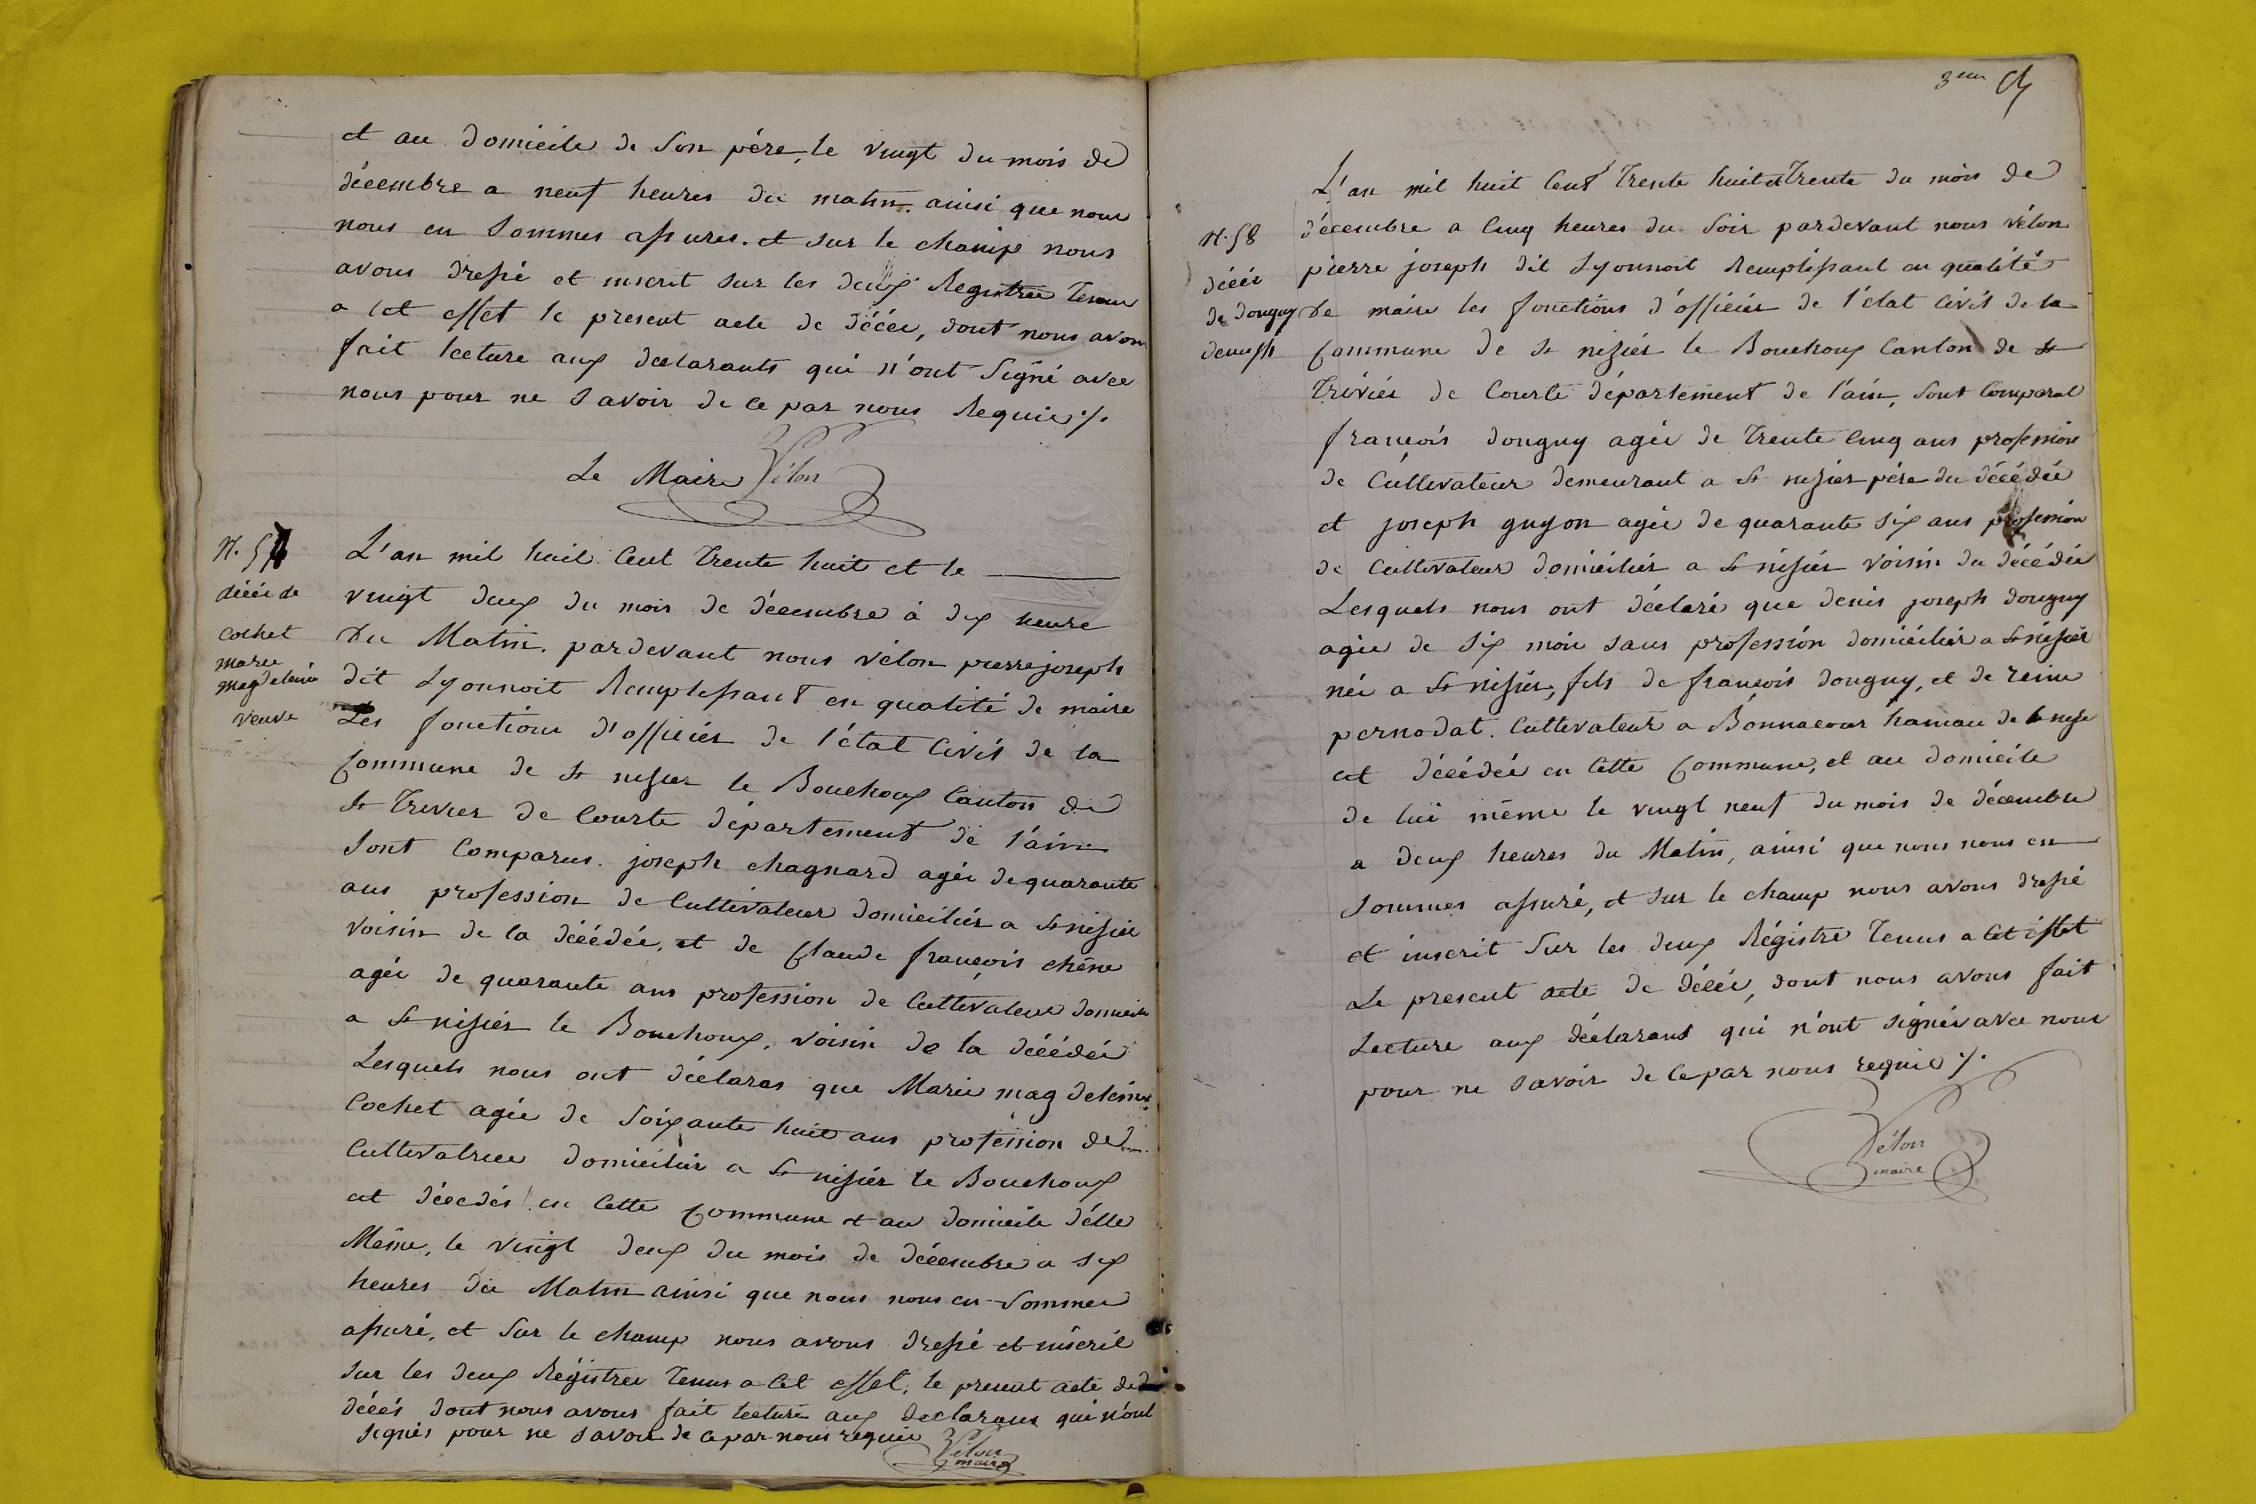 et au domicile de son père, le vingt du mois de
décembre a neuf heures du matin. ainsi que nous
nous en sommes assures. et sur le champ nous
avons dressé et inscrit sur les deux Registre Tenu
a cet effet le present acte de décés, dont nous avons
fait lecture aux declarants qui n'ont Signé avec
nous pour ne savoir de ce par nous Requis ./.
Le Maire Vélon
N. 57
décés de
Cochet
marie
magdeleine
veuve
L'an mil huit Cent Trente huit et le
vingt deux du mois de décembre à dix heure
Du Matin. pardevant nous vélon pierre joseph
dit Lyonnoit Remplissant en qualité de maire
Les fonctions d'officiér de l'état Civil de la
Commune de St nisier le Bouchoux Canton de
St Trivier de Courte département de l'ain
sont Comparus. joseph chagnard agée de quarante
ans profession de Cultivateur domiciliér a St nisier
voisin de la décédée, et de Claude françois chêne
agée de quarante ans profession de Cultivateur domicilié
a St nisiér le Bouchoux, voisin de la décédée
Lesquels nous ont déclaras que Marie magdeleine
Cochet agée de Soixante huit ans profession de
Cultivatrice domiciliér a St nisiér le Bouchoux
est décédés en Cette Commune et au domicile d'elle
Même, le vingt deux du mois de décembre a six
heures du Matin ainsi que nous nous en Sommes
assuré, et Sur le champ nous avons dressé et inscrit
sur les deux Régistre Tenus a Cet effet, le present acte de
décés dont nous avons fait lecture aux declarans qui n'ont
signés pour ne savoir de ce par nous requis
Vélon
maire
3eme
N. 58
décés
de douguy
denis jh
L'an mil huit Cent Trente huit et Trente du mois de
décembre a Cinq heures du Soir pardevant nous vélon
pierre joseph dit Lyonnoit Remplissant en qualité
De maire les fonctions d'officiér de l'état Civil de la
Commune de St nisiér le Bouchoux Canton de St
Triviér de Courte département de l'ain, sont Comparut
françois douguy agée de Trente Cinq ans profession
de Cultivateur demeurant a St nisier père du décédée
et joseph guyon agée de quarante Six ans profession
de Cultivateur domiciliér a St nisiér voisin du décédée
Lesquels nous ont déclaré que denis joseph douguy
agée de Six mois sans profession domiciliér a St nisiér
née a St nisiér, fils de françois douguy, et de reine
pernodat. Cultivateur a Bonnacour hamau de St nisie
est décédée en Cette Commune, et au domicile
de lui même le vingt neuf du mois de décembre
a deux heures du Matin, ainsi que nous nous en
sommes assuré, et sur le champ nous avons dressé
et inscrit Sur les deux Régistre Tenus a Cet effet
Le present acte de décés, dont nous avons fait
Lecture aux déclarans qui n'ont signés avec nous
pour ne savoir de ce par nous requis ./.
Vélon
maire